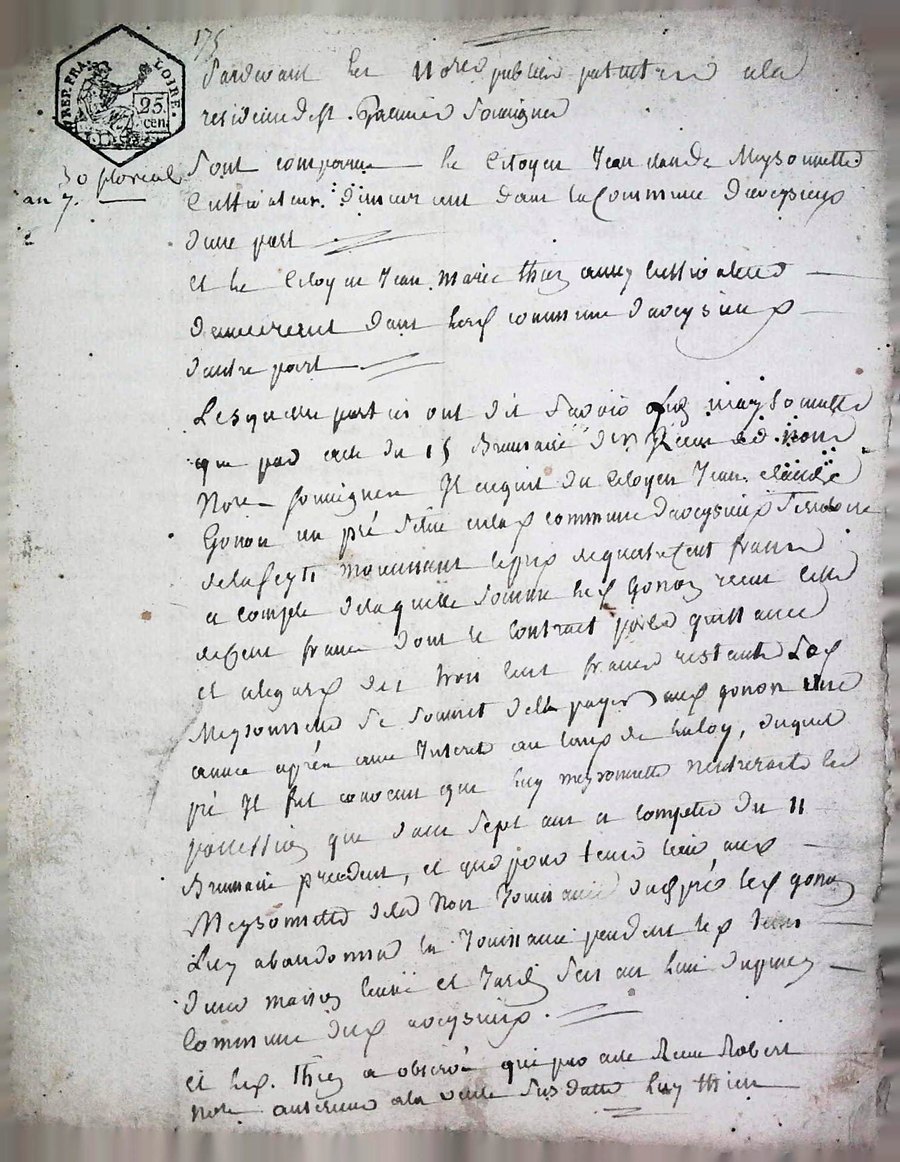 175
REP. FRA. LOIRE.
25. cen.
30 floreal
an 7.
Pardevant les Nores publics patentés a la
residence de St. Galmier Soussigné
Sont comparus le Citoyen Jean Claude Meysonnette
Cultivateur demeurant dans la Commune d'aveysieux
d'une part
et le Citoyen Jean Marie thiez aussy Cultivateur
demeurant dans commune d'aveysieux
d'autre part
Lesquelles parties ont dit Savoir Meysonnette
que par acte du 15 Brumaire Reçu nous
Nore Soussigné Il acquit du Citoyen Jean Claude
Gonon un pré Situé commune d'aveysieux
moyennant le prix de quatre Cent francs
a compte de laquelle Somme led Gonon reçut celle
de Cent francs dont le Contrat porte quittance
et a legard des trois Cent francs restants Led
Meysonnette Se Soumit de les payer aud gonon une
année après avec Interet au taux de la loy, duquel
pré Il fut convenu que luy meysonnette n'entreroit en
possession que dans Sept ans a compter du 11
Brumaire precedent, et que pour tenir lieu aud
Meysonnette de la Non Jouissance dud pré led gonon
Luy abandonna la Jouissance pendant led tems
d'une maison et Jardin Sis au lieu
Commune dud aveysieux.
et led. thiez a observé que par acte Reçu Robert
Nore anterieur a la vente Susdatte luy thiez